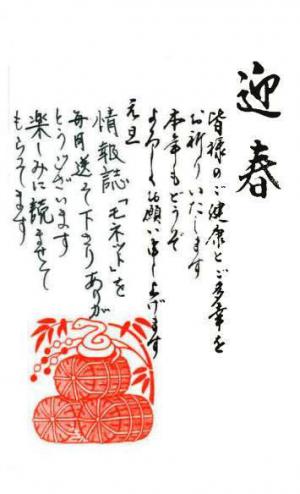 迎春
皆様のご健康とご多幸を
お祈りいたします
本年もどうぞ
よろしくお願い申し上げます
元旦
情報誌「モネット」を
毎月送って下さりありが
とうございます
楽しみに読ませて
もらってます